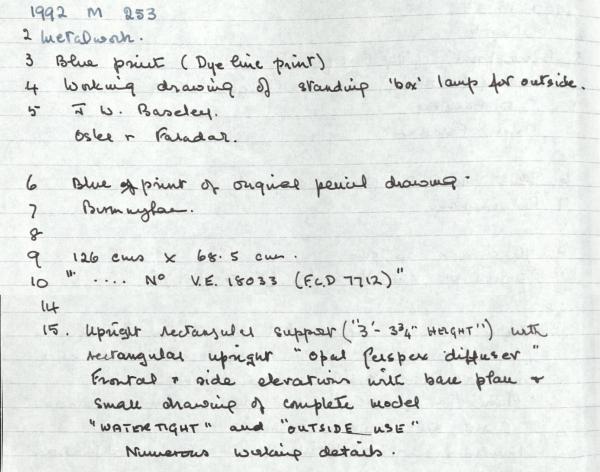 1992 M 253
2 Metalwork.
3 Blue print (Dye line print)
4 Working drawing of standing 'box' lamp for outside.
5 J W. Baseley.
Osler + Faraday.
6 Blue print of original pencil drawing.
7 Birmingham.
8
9 126 cms x 68.5 cm.
10 " .... No V.E. 18033 (F.C.D 7712)"
14
15. Upright rectangular support ("3'- 3¾" HEIGHT") with
rectangular upright "Opal Perspex diffuser"
Frontal + side elevations with base plan +
small drawing of complete model
"WATERTIGHT" and "OUTSIDE USE"
Numerous working details.